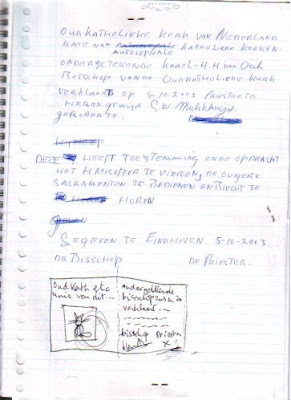 OUD KATHOLIEKE KERK VAN NEDERLAND
UNIE VAN KATHOLIEKE KERKEN
AUTOCEPHALE
ONDERGETEKENDE KAREL-H.H van Oort
BISSCHOP VAN DE OUDKATHOLIEKE KERK
VERKLAART OP 5-10-2003
GEWIJD
DEZE HEEFT TOESTEMMING EN DE OPDRACHT
HET H MISOFFER TE VIEREN, DE OVERIGE
SACRAMENTEN TE BEDIENEN EN BIECHT TE
HOREN
GEGEVEN TE EINDHOVEN. 5-10-2003
DE BISSCHOP DE PRIESTER.
Oud Kath
unie van
ondergetekende
bisschop
verklaart
bisschop Priester